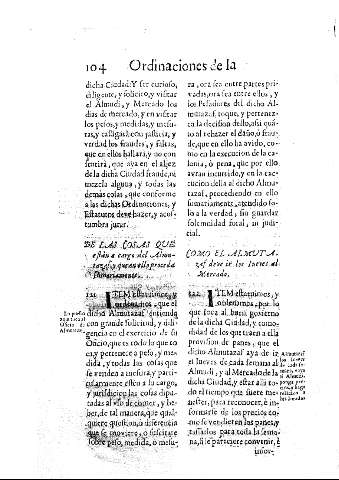 104 Ordinaciones de la
dicha Ciudad. Y ser curioso,
diligente, y solicito, y visitar
el Almudi, y Mercado los
dias de mercado, y en visitar
los pesos, y medidas, y instu-
ras, y castigarà con justicia, y
verdad los fraudes, y faltas,
que en ellos hallarà, y no con
sentirà, que aya en el aljez
de la dicha Ciudad fraude, ni
mezcla alguna, y todas las
demàs cosas, que conforme
a las dichas Ordinaciones, y
Estatutos deve hazer, y acos-
tumbra jurar.
DE LAS COSAS QUE
estàn a cargo del Almu-
tazaf, y que en ello proceda
sumariamente.
121 ITEM estatuimos, y
ordenamos, que el
dicho Almutazaf entienda
con grande solicitud, y di-
gencia en el exercicio de su
Oficio, que es todo lo que to-
ca, y pertenece a peso, y me-
dida, y todas las cosas que
se venden a mesura, y parti-
cularmente estèn a su cargo,
y jurisdicion las cosas dipu-
tadas al vso de comer, y be-
ber, de tal manera, que qual-
quiere question, ò diferencia
que se moviere, ò suscitare
sobre peso, medida, ò mesu-
Lo perteneciente al
Oficio de
Almutazaf.
ra, ora sea entre partes pri-
vadas, ora sea entre ellos, y
los Pesadores del dicho Al-
mutazaf, toque, y pertenez-
ca la decision dello, assi quã-
to al rehazer el daño, ò frau-
de, que en ello ha avido, como
en la execucion de la ca-
lonia, ò pena, que por ello
avran incurrido, y en la exe-
cucion della al dicho Almu-
tazaf, precediendo en ello
sumariamente, atendida so-
lo a la verdad, sin guardar
solemnidad foral, ni judi-
cial.
COMO EL ALMUTA-
zaf deve ir los Jueves al
Mercado.
122 ITEM estatuimos, y
ordenamos, por lo
que toca al buen govierno
de la dicha Ciudad, y como-
didad de los que traen a ella
provision de panes, que el
dicho Almutazaf aya de ir
el Jueves de cada semana al
Almudi, y al Mercado de la
dicha Ciudad, y estar allì to-
do el tiempo que fuere me-
nester, para reconocer, è in-
formarse de los precios co-
mo se venderàn los panes, y
tassarlos para toda la sema-
na, si le pareciere convenir, è
infor-
Almutazaf
los Jueves
de cada se-
mana, vaya
al Almudi,
ponga pre-
cio, y haga
relacion a
los Jurados